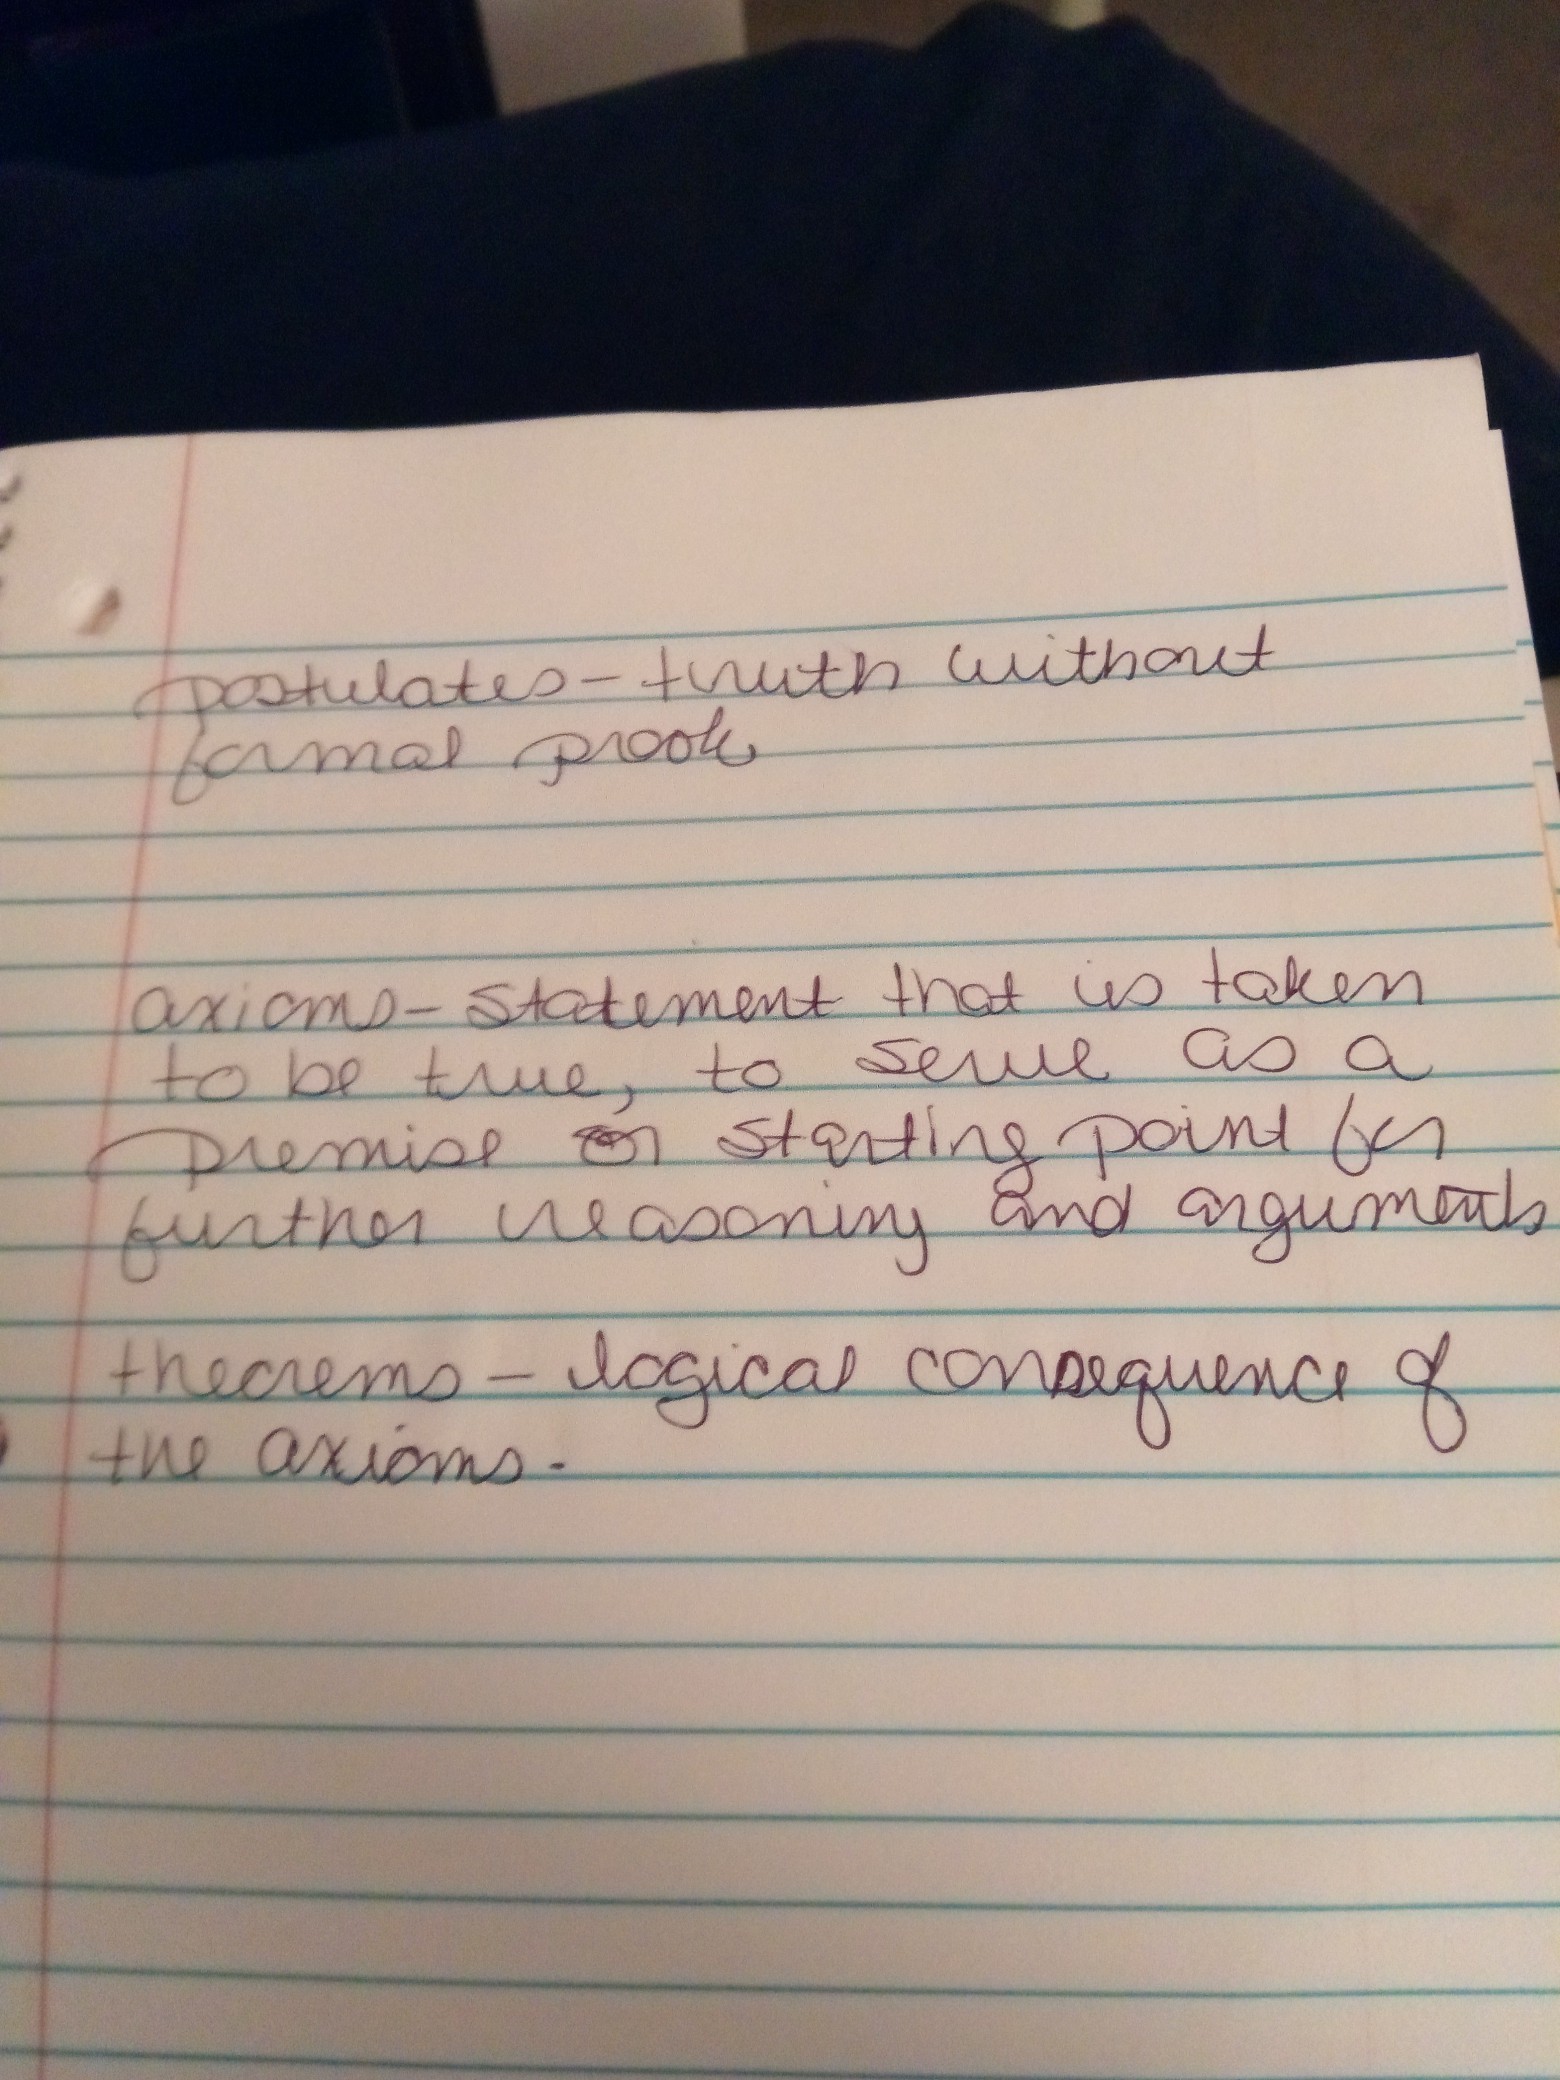 postulates - truth without
formal proof
axioms - statement that is taken
to be true, to serve as a
premise or starting point for
further reasoning and arguments
theorems - logical consequence of
the axioms.